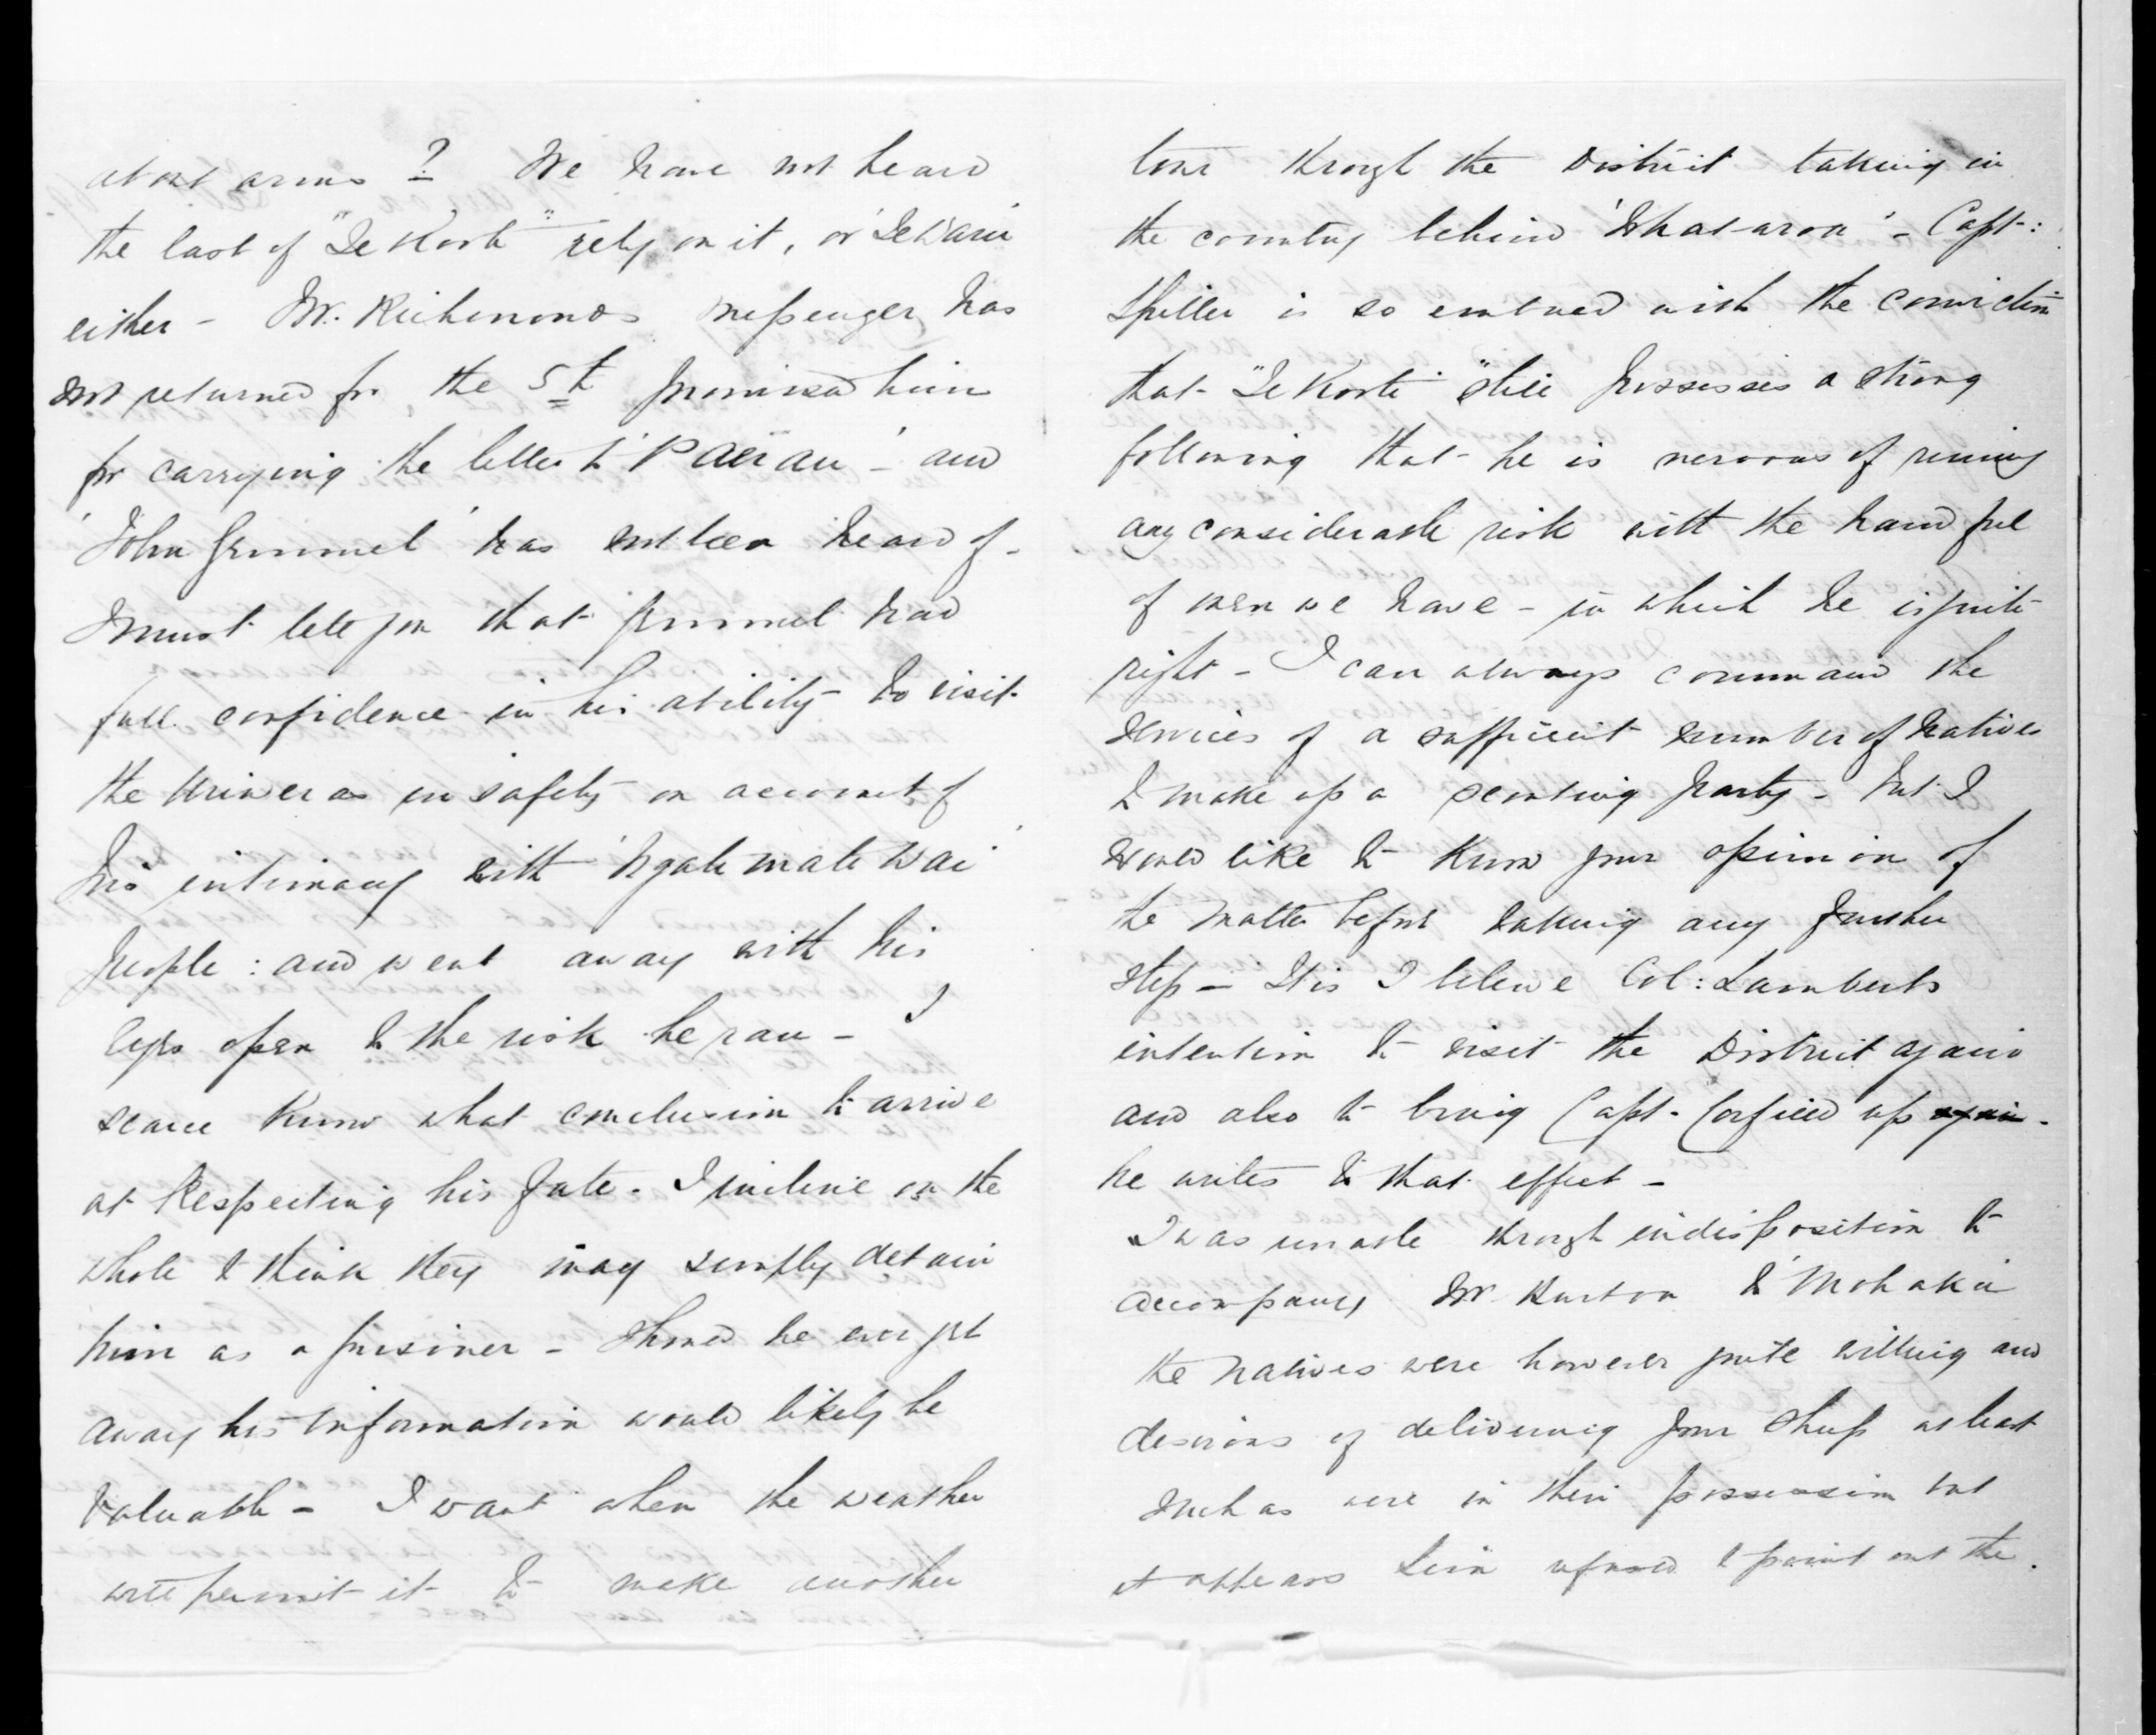 about arms ? We have not heard
the last of "Te Kooti" rely on it, or 'Te Waru'
either - Mr. Richmonds messenger has
not returned for the 5£ promised him
for carrying the letter to 'Paerau' - and
'John Grimmel' has not been heard of -
I must tell you that Grimmel had
full confidence in his ability to visit
the Uriweras in safety on account of
his intimacy with 'Ngatimatewai'
people : and went away with his
eyes open to the risk he ran - I
scarce know what conclusion to arrive
at respecting his fate. I incline on the
whole to think they may simply detain
him as a prisoner - Should he ever get
away his information would likely be
valuable - I want when the weather
will permit it to make another
tour through the District taking in
the country behind 'Whataroa' - Capt:
Spiller is so imbued with the conviction
that "Te Kooti" still possesses a strong
following that he is nervous of runing
any considerable risk with the handful
of men we have - in which he is quite
right - I can always command the
services of a sufficient number of Natives
to make up a scouting party - but I
would like to know your opinion of
the matter before taking any further
step - It is I believe Col: Lamberts
intention to visit the District again
and also to bring Capt. Corfield up again -
he writes to that effect -
I was unable through indisposition to
accompany Mr. Burton to Mohaka
the natives were however quite willing and
desirous of delivering your sheep at least
such as were in their possession but
it appears refused to point out the